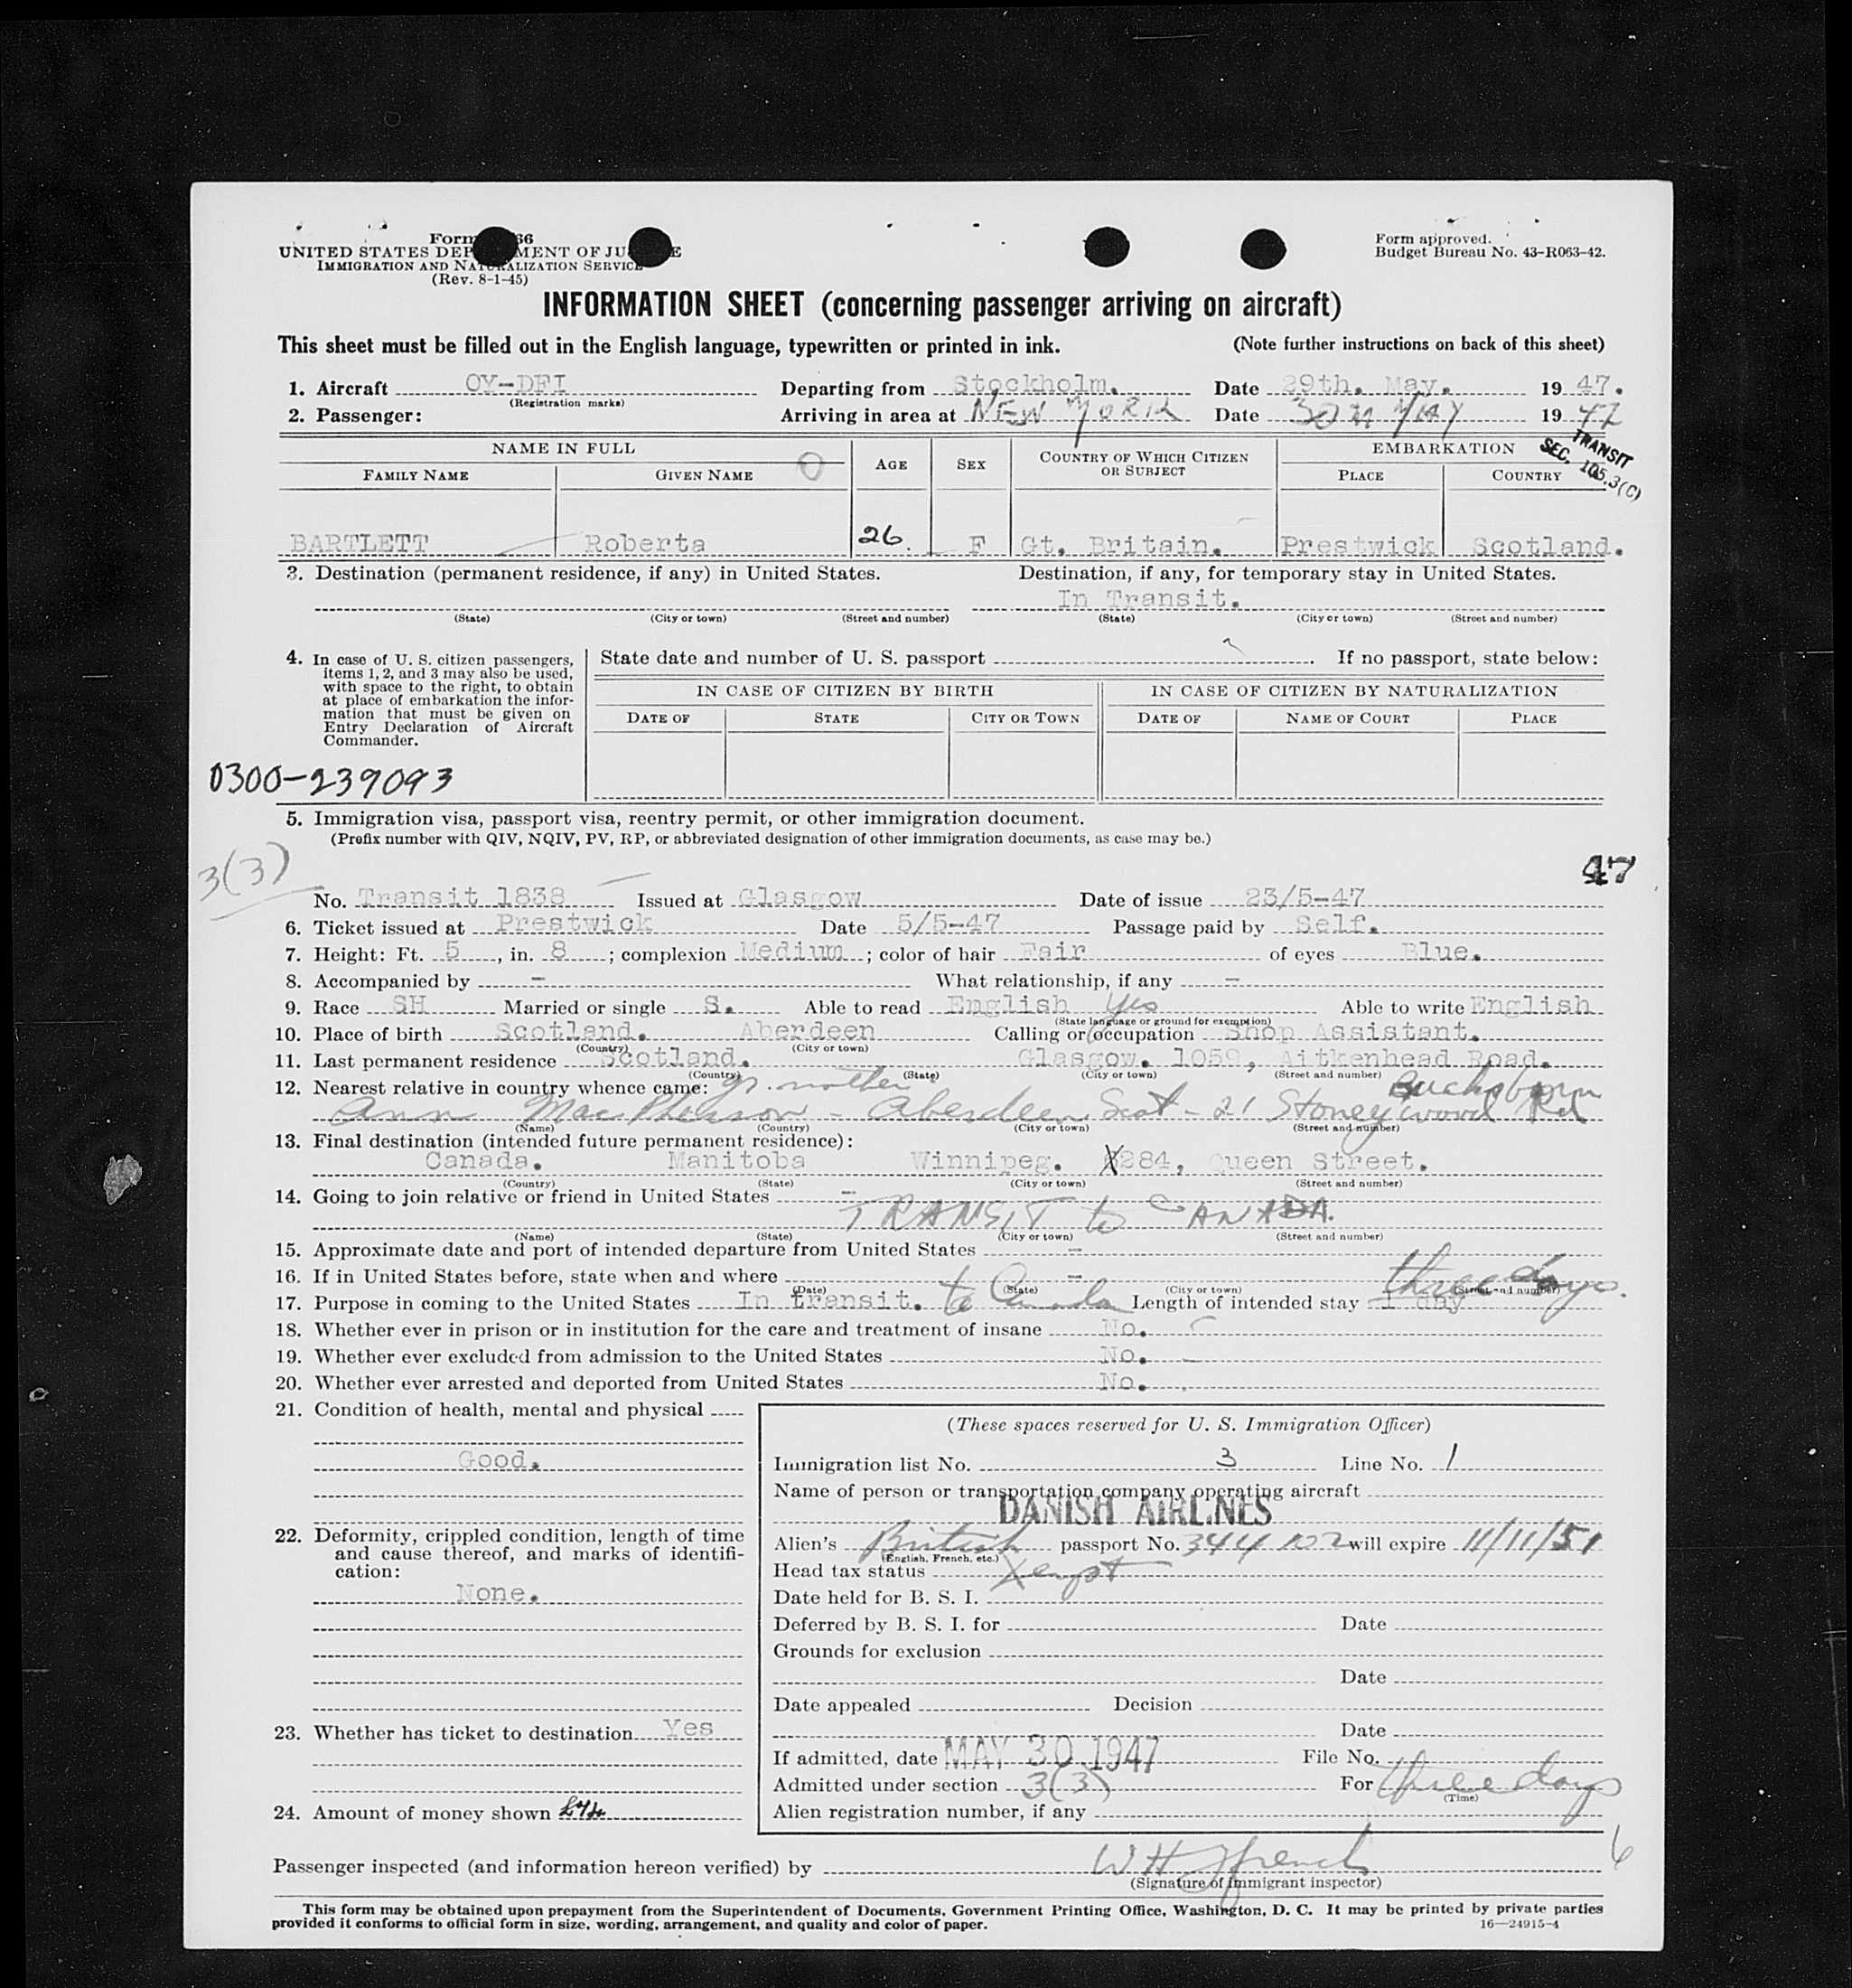 Form 66
UNITED STATES DEP MENT OF JU E
IMMIGRATION AND NATURALIZATION SERVICE
(Rev. 8-1-45)
Form approved.
Budget Bureau No. 43-R063-42.
INFORMATION SHEET (concerning passenger arriving on aircraft)
This sheet must be filled out in the English language, typewritten or printed in ink. (Note further instructions on back of this sheet)
1. Aircraft OY-DFI Departing from Stockholm. Date 29th. May. 19 47.
(Registration marks)
2. Passenger: Arriving in area at NEW YORK Date 30TH MAY 19 47
TRANSIT
SEC. 105.3(C)
NAME IN FULL AGE SEX COUNTRY OF WHICH CITIZEN OR SUBJECT EMBARKATION
FAMILY NAME GIVEN NAME PLACE COUNTRY
BARTLETT Roberta 26. F Gt. Britain. Prestwick Scotland.
3. Destination (permanent residence, if any) in United States. Destination, if any, for temporary stay in United States.
In Transit.
(State) (City or town) (Street and number) (State) (City or town) (Street and number)
4. In case of U. S. citizen passengers, items 1, 2, and 3 may also be used, with space to the right, to obtain at place of embarkation the information that must be given on Entry Declaration of Aircraft Commander.
State date and number of U. S. passport . If no passport, state below:
IN CASE OF CITIZEN BY BIRTH IN CASE OF CITIZEN BY NATURALIZATION
DATE OF STATE CITY OR TOWN DATE OF NAME OF COURT PLACE
0300-239093
5. Immigration visa, passport visa, reentry permit, or other immigration document.
(Prefix number with QIV, NQIV, PV, RP, or abbreviated designation of other immigration documents, as case may be.)
3(3)
47
No. Transit 1838 Issued at Glasgow Date of issue 23/5-47
6. Ticket issued at Prestwick Date 5/5-47 Passage paid by Self.
7. Height: Ft. 5, in. 8; complexion Medium; color of hair Fair of eyes Blue.
8. Accompanied by - What relationship, if any -
9. Race SH Married or single S. Able to read English yes Able to write English
(State language or ground for exemption)
10. Place of birth Scotland. Aberdeen Calling or occupation Shop Assistant.
(Country) (City or town)
11. Last permanent residence Scotland. Glasgow. 1059, Aitkenhead Road.
(Country) (State) (City or town) (Street and number)
12. Nearest relative in country whence came: gr. mother
Ann MacPherson - Aberdeen Scot - 21 Stoneywood Rd
(Name) (Country) (City or town) (Street and number)
13. Final destination (intended future permanent residence):
Canada. Manitoba Winnipeg. 284, Queen Street.
(Country) (State) (City or town) (Street and number)
14. Going to join relative or friend in United States -
TRANSIT to CANADA.
(Name) (State) (City or town) (Street and number)
15. Approximate date and port of intended departure from United States -
16. If in United States before, state when and where -
(Date) (State) (City or town) (Street and number)
17. Purpose in coming to the United States In transit. to Canada Length of intended stay 1 day three days.
18. Whether ever in prison or in institution for the care and treatment of insane No.
19. Whether ever excluded from admission to the United States No.
20. Whether ever arrested and deported from United States No.
21. Condition of health, mental and physical
Good.
22. Deformity, crippled condition, length of time and cause thereof, and marks of identification:
None.
23. Whether has ticket to destination Yes
24. Amount of money shown
(These spaces reserved for U. S. Immigration Officer)
Immigration list No. 3 Line No. 1
Name of person or transportation company operating aircraft
DANISH AIRLINES
Alien's British passport No. 344102 will expire 11/11/51
(English, French, etc.)
Head tax status Xempt
Date held for B. S. I.
Deferred by B. S. I. for Date
Grounds for exclusion
Date
Date appealed Decision
Date
If admitted, date MAY 30 1947 File No.
Admitted under section 3(3) For three days
(Time)
Alien registration number, if any
6
Passenger inspected (and information hereon verified) by W H French
(Signature of immigrant inspector)
This form may be obtained upon prepayment from the Superintendent of Documents, Government Printing Office, Washington, D. C. It may be printed by private parties
provided it conforms to official form in size, wording, arrangement, and quality and color of paper. 16—24915-4